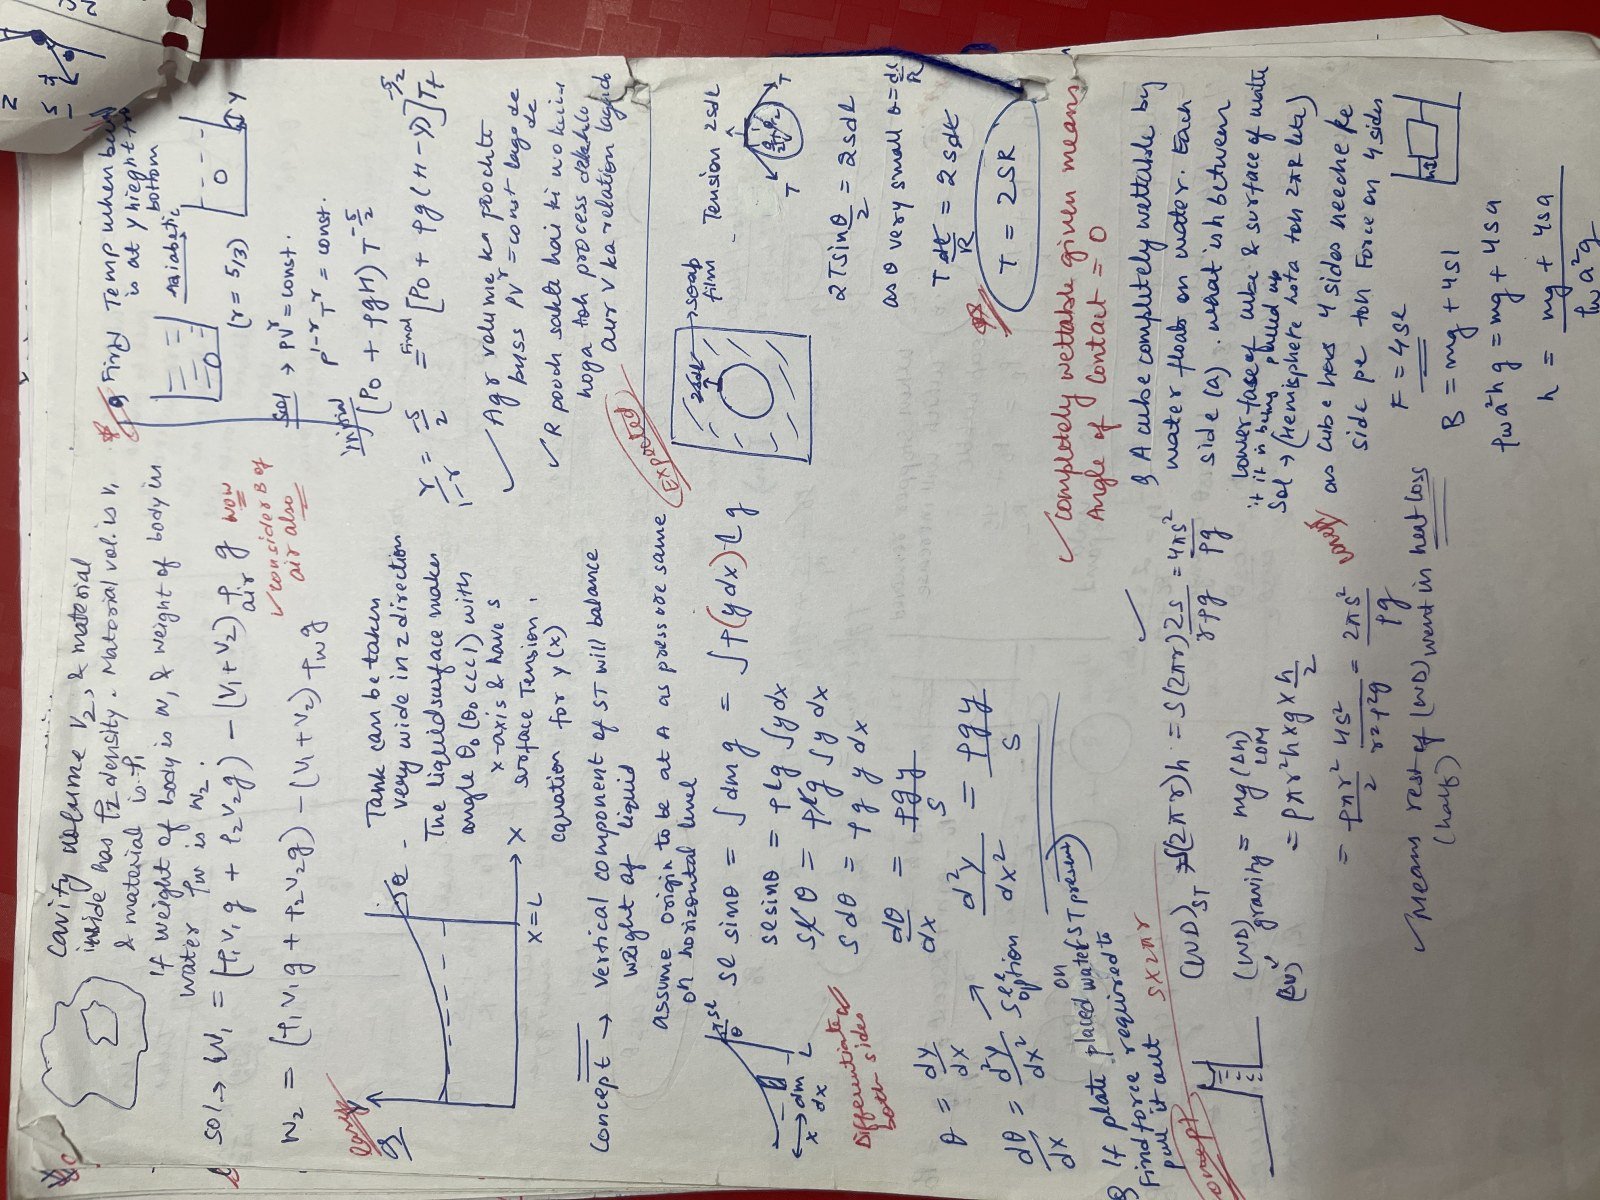 cavity volume V2, & material
inside has ρ2 density. Material vol. is V1
& material is ρ1
If weight of body is w1 & weight of body in
water ρw is w2.
sol → W1 = (ρ1V1g + ρ2V2g) - (V1+V2) ρair g
now
✓ consider B of
air also
W2 = (ρ1V1g + ρ2V2g) - (V1+V2) ρw g
Q
θ
x = L
X
- Tank can be taken
very wide in z direction
The liquid surface makes
angle θ0 (θ0 <<< 1) with
x-axis & have s
surface Tension.
equation for y(x)
Concept → vertical component of ST will balance
weight of liquid
assume origin to be at A as pressure same
on horizontal level
sl
θ
dm
dx
x
L
sl sinθ = ∫dm g = ∫ρ(y dx) L g
sl sinθ = ρLg ∫y dx
sl θ = ρLg ∫y dx
s dθ = ρ g y dx
dθ/dx = ρgy/s
Differentiate
both sides
θ = dy/dx
dθ/dx = d²y/dx²
see
option
d²y/dx² = ρgy/s
Q If plate placed on water (ST present)
Find force required to
pull it out
S×2πr
concept
(WD)ST = S(2πr)h = S(2πr) 2s/rρg = 4πs²/ρg
(WD)gravity = mg(Δh)COM
= ρπr²h×g×h/2
= ρπr²/2 4s²/r²ρ²g = 2πs²/ρg
✓ Means rest of (WD) went in heat loss
(half)
Q Find Temp when bubble
is at y hieght from
bottom
adiabatic
(r = 5/3)
y
sol → PV^r = const.
P^1-r T^r = const.
Initial
Final
(P0 + ρgH) T^-5/2 = [P0 + ρg(H-y)] Tf^-5/2
r/1-r = -5/2
✓ Agr volume ka poochte
buss PV^r = const laga de
✓ R pooch sakte hai ki no kein
hoga toh process dekhlo
aur V ka relation lagado
Expected
2sdl
→ soap
film
- Tension 2sdl
T
T
2T sinθ/2 = 2sdl
as θ very small θ = dl/R
T dl/R = 2sdl
T = 2SR
✓ completely wettable given means
Angle of Contact = 0
Q A cube completely wettable by
water floats on water. Each
side (a). what is h between
lower face of cube & surface of water
it is being pulled up
Sol → (Hemisphere hota toh 2πR lete)
as cube has 4 sides neeche ke
side pe toh Force on 4 sides
F = 4sl
B = mg + 4sl
ρw a²hg = mg + 4sa
h = mg + 4sa / ρw a²g